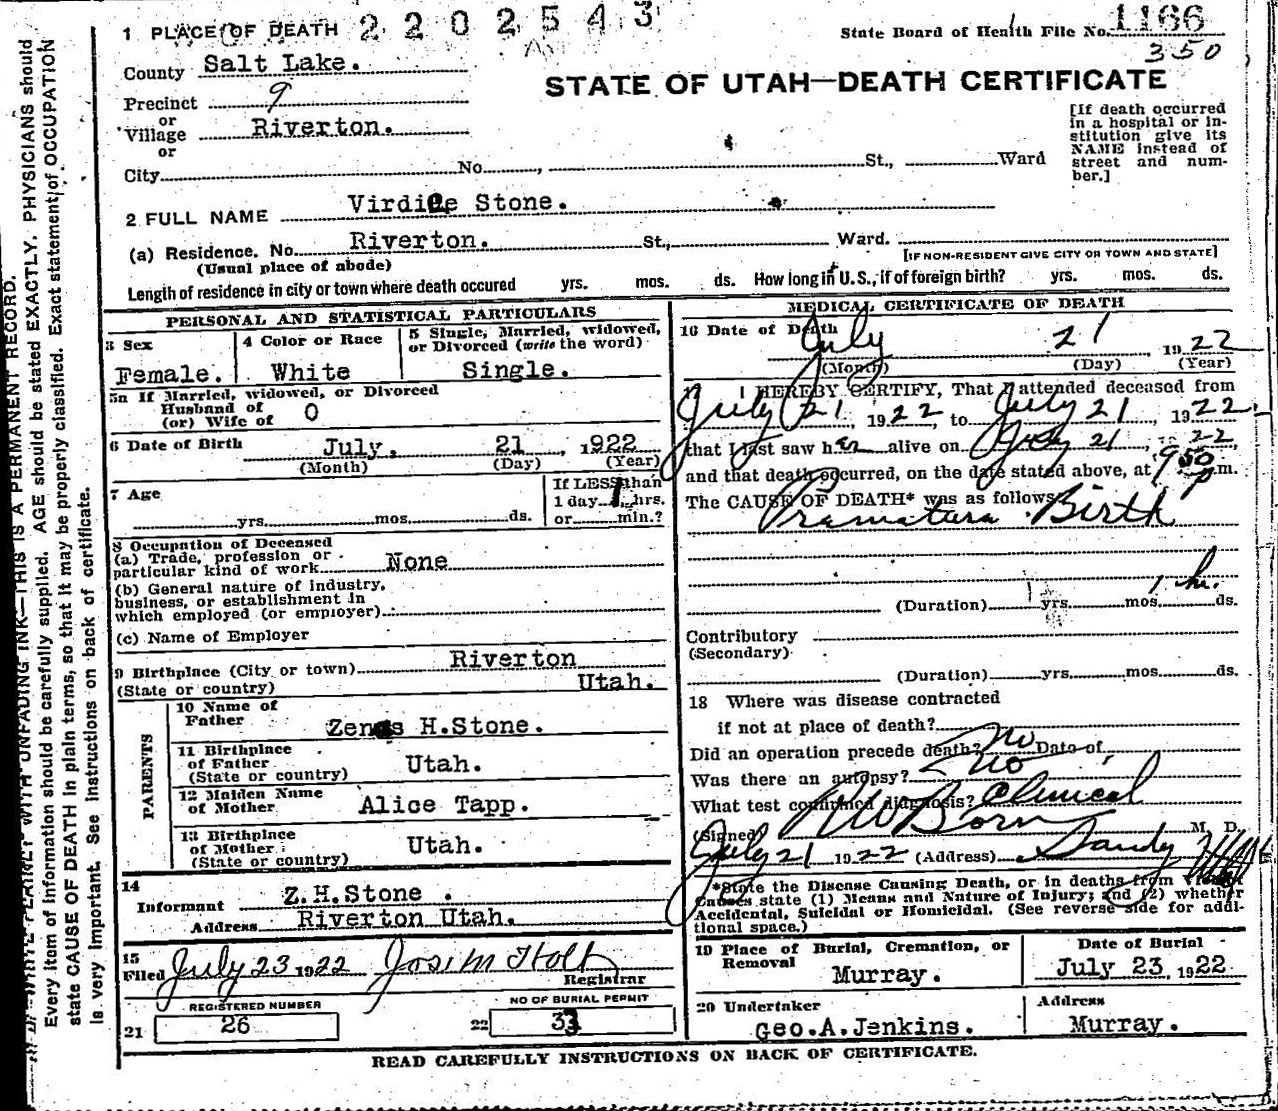 2202543
1 PLACE OF DEATH
State Board of Health File No. 1166
350
County Salt Lake.
STATE OF UTAH—DEATH CERTIFICATE
Precinct 9
or
Village Riverton.
or
City No. , St., Ward
[If death occurred
in a hospital or in-
stitution give its
NAME instead of
street and num-
ber.]
2 FULL NAME Stone.
(a) Residence. No. Riverton. St., Ward.
(Usual place of abode) [IF NON-RESIDENT GIVE CITY OR TOWN AND STATE]
Length of residence in city or town where death occured yrs. mos. ds. How long in U.S., if of foreign birth? yrs. mos. ds.
PERSONAL AND STATISTICAL PARTICULARS
3 Sex
Female.
4 Color or Race
White
5 Single, Married, widowed,
or Divorced (write the word)
Single.
5a If Married, widowed, or Divorced
Husband of
(or) Wife of O
6 Date of Birth July. 21 , 1922
(Month) (Day) (Year)
7 Age
yrs. mos. ds.
If LESS than
1 day 1 hrs.
or min.?
8 Occupation of Deceased
(a) Trade, profession or
particular kind of work None
(b) General nature of industry,
business, or establishment in
which employed (or employer)
(c) Name of Employer
9 Birthplace (City or town) Riverton
(State or country) Utah.
PARENTS
10 Name of
Father H.Stone.
11 Birthplace
of Father
(State or country) Utah.
12 Maiden Name
of Mother Alice Tapp.
13 Birthplace
of Mother
(State or country) Utah.
14
Informant Z.H.Stone .
Address Riverton Utah.
15
Filed July 23 1922 Jos. M Holt
Registrar
REGISTERED NUMBER
21 26
NO OF BURIAL PERMIT
22
MEDICAL CERTIFICATE OF DEATH
16 Date of Death
July 21 1922
(Month) (Day) (Year)
17 I HEREBY CERTIFY, That I attended deceased from
July 21, 1922, to July 21, 1922,
that I last saw her alive on July 21, 1922,
and that death occurred, on the date stated above, at 9 50 p m.
The CAUSE OF DEATH* was as follows:
Premature Birth
1 hr.
(Duration) yrs. mos. ds.
Contributory
(Secondary)
(Duration) yrs. mos. ds.
18 Where was disease contracted
if not at place of death?
Did an operation precede death? No Date of
Was there an autopsy? no
What test confirmed diagnosis? Clinical
(Signed) M. D.
July 21 1922 (Address) Sandy
*State the Disease Causing Death, or in deaths from Violent
Causes state (1) Means and Nature of Injury; and (2) whether
Accidental, Suicidal or Homicidal. (See reverse side for addi-
tional space.)
19 Place of Burial, Cremation, or
Removal
Murray.
Date of Burial
July 23, 1922
20 Undertaker
Geo.A.Jenkins.
Address
Murray.
READ CAREFULLY INSTRUCTIONS ON BACK OF CERTIFICATE.
WITH UNFADING INK—THIS IS A PERMANENT RECORD.
Every item of information should be carefully supplied. AGE should be stated EXACTLY. PHYSICIANS should
state CAUSE OF DEATH in plain terms, so that it may be properly classified. Exact statement of OCCUPATION
is very important. See instructions on back of certificate.